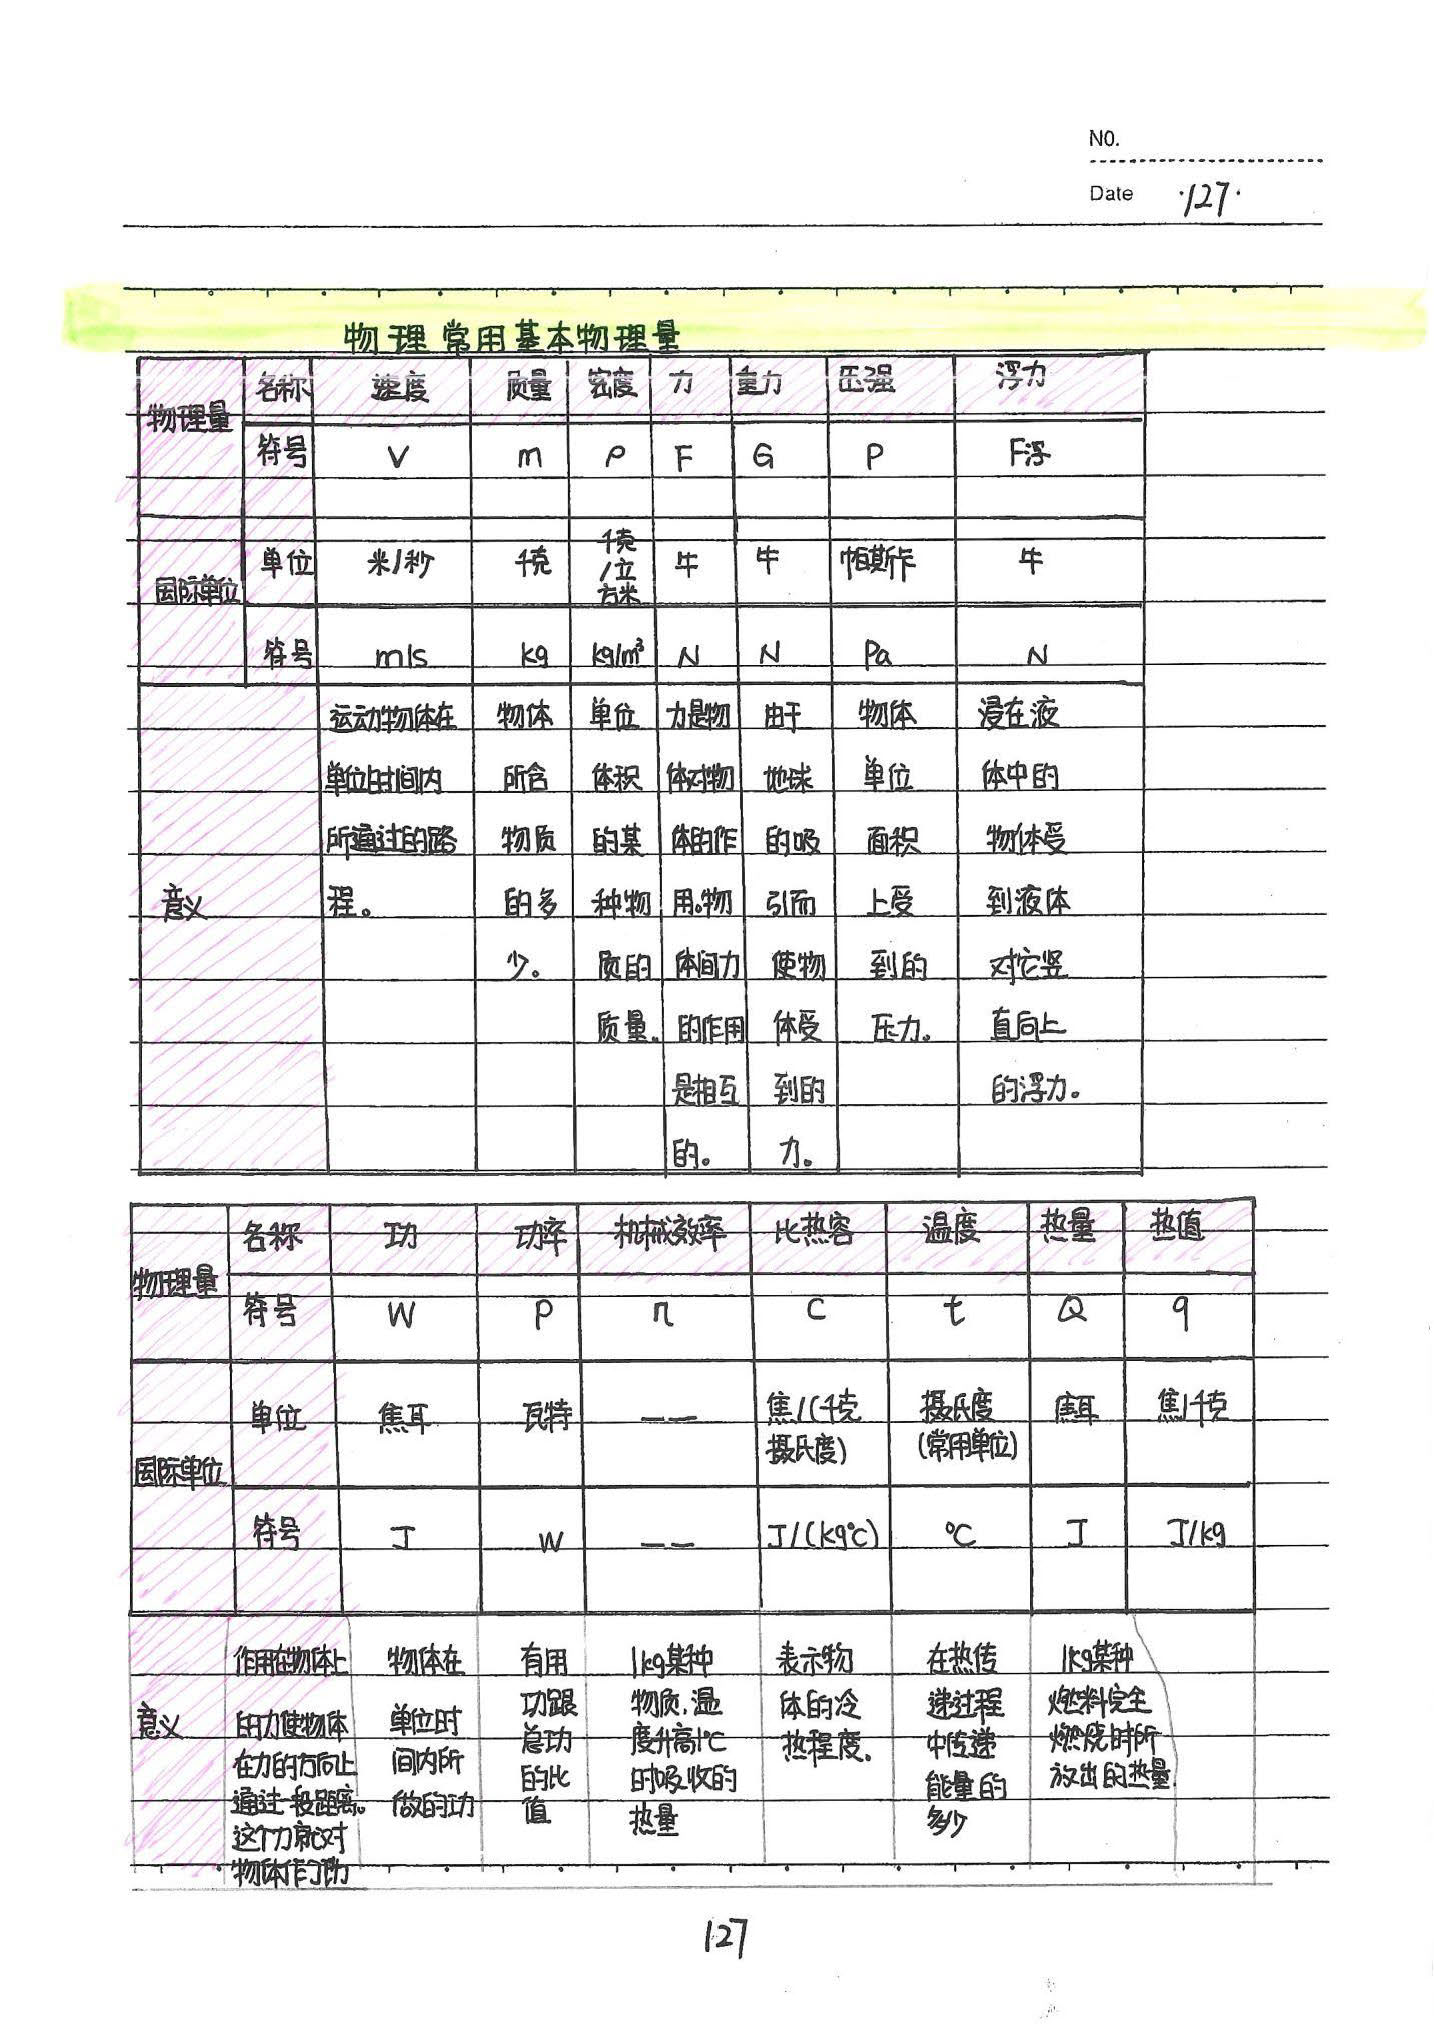 NO.
Date ·127·
物理常用基本物理量
物理量 名称 速度 质量 密度 力 重力 压强 浮力
符号 V m ρ F G P F浮
国际单位 单位 米/秒 千克 千克/立方米 牛 牛 帕斯卡 牛
符号 m/s kg kg/m³ N N Pa N
意义
运动物体在 物体 单位 力是物 由于 物体 浸在液
单位时间内 所含 体积 体对物 地球 单位 体中的
所通过的路 物质 的某 体的作 的吸 面积 物体受
程。 的多 种物 用。物 引而 上受 到液体
少。 质的 体间力 使物 到的 对它竖
质量。 的作用 体受 压力。 直向上
是相互 到的 的浮力。
的。 力。
物理量 名称 功 功率 机械效率 比热容 温度 热量 热值
符号 W P η C t Q q
国际单位 单位 焦耳 瓦特 —— 焦/(千克摄氏度) 摄氏度(常用单位) 焦耳 焦/千克
符号 J W —— J/(kg℃) ℃ J J/kg
意义
作用在物体上 物体在 有用 1kg某种 表示物 在热传 1kg某种
的力使物体 单位时 功跟 物质,温 体的冷 递过程 燃料完全
在力的方向上 间内所 总功 度升高1℃ 热程度。 中传递 燃烧时所
通过一段距离。 做的功 的比 时吸收的 能量的 放出的热量
这个力就对 值 热量 多少
物体作了功
127